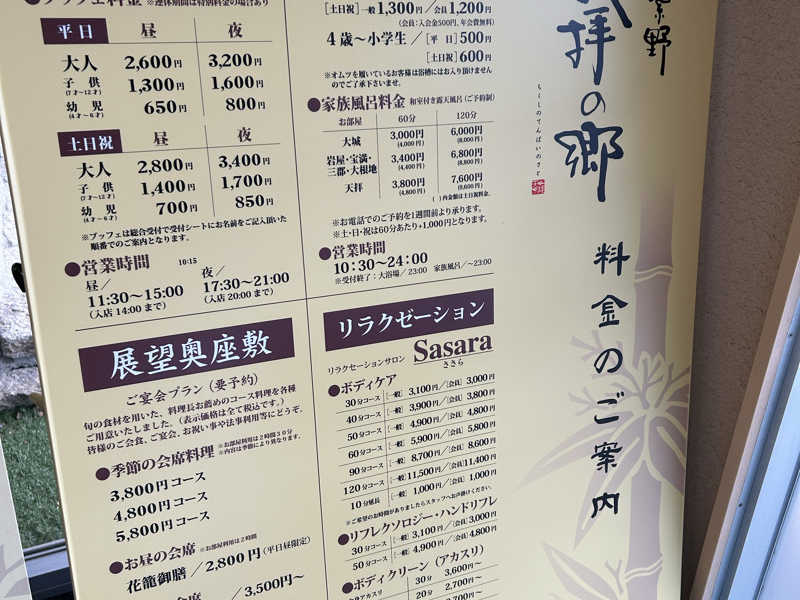 ブッフェ料金 ※連休期間は特別料金の場合あり
平日 昼 夜
大人 2,600円 3,200円
子供(7才〜12才) 1,300円 1,600円
幼児(4才〜6才) 650円 800円
土日祝 昼 夜
大人 2,800円 3,400円
子供(7才〜12才) 1,400円 1,700円
幼児(4才〜6才) 700円 850円
※ブッフェは総合受付で受付シートにお名前をご記入頂いた
順番でのご案内となります。
●営業時間 10:15
昼/ 夜/
11:30〜15:00 17:30〜21:00
(入店 14:00 まで) (入店 20:00 まで)
展望奥座敷
ご宴会プラン(要予約)
旬の食材を用いた、料理長お薦めのコース料理を各種
ご用意いたしました。(表示価格は全て税込です。)
皆様のご会食、ご宴会、お祝い事や法事利用等にどうぞ。
●季節の会席料理 ※お部屋利用は2時間30分
※内容は季節により異なります。
3,800円コース
4,800円コース
5,800円コース
●お昼の会席 ※お部屋利用は2時間
花籠御膳/2,800円(平日昼限定)
会席/3,500円〜
[土日祝]一般1,300円/会員1,200円
(会員:入会金500円、年会費無料)
4歳〜小学生/[平日]500円
[土日祝]600円
※オムツを履いているお客様は浴槽にはお入り頂けません
のでご了承下さいませ。
●家族風呂料金 和室付き露天風呂(ご予約制)
お部屋 60分 120分
大城 3,000円(4,000円) 6,000円(8,000円)
岩屋・宝満・三郡・大根地 3,400円(4,400円) 6,800円(8,800円)
天拝 3,800円(4,800円) 7,600円(9,600円)
( )内金額は土日祝料金。
※お電話でのご予約を1週間前より承ります。
※土・日・祝は60分あたり+1,000円となります。
●営業時間
10:30〜24:00
※受付終了:大浴場/23:00 家族風呂/〜23:00
リラクゼーション
リラクゼーションサロン Sasara
ささら
●ボディケア
30分コース [一般] 3,100円/[会員] 3,000円
40分コース [一般] 3,900円/[会員] 3,800円
50分コース [一般] 4,900円/[会員] 4,800円
60分コース [一般] 5,900円/[会員] 5,800円
90分コース [一般] 8,700円/[会員] 8,600円
120分コース [一般] 11,500円/[会員] 11,400円
10分延長 [一般] 1,000円/[会員] 1,000円
※ご希望のお時間がありましたらスタッフへお声掛けください。
●リフレクソロジー・ハンドリフレ
30分コース [一般] 3,100円/[会員] 3,000円
50分コース [一般] 4,900円/[会員] 4,800円
●ボディクリーン(アカスリ)
アカスリ 30分 3,600円〜
20分 2,700円〜
2,700円〜
紫野
拝の郷
ちくしのてんぱいのさと
料金のご案内